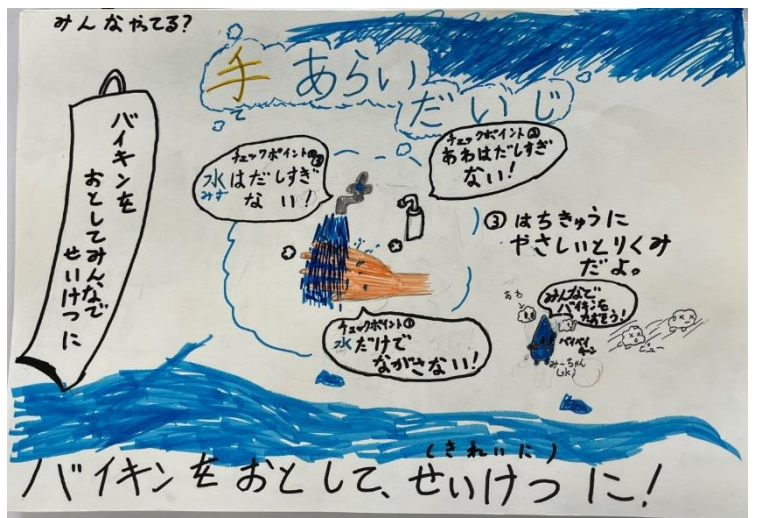 みんなやってる?
手あらい
て
だいじ
バイキンを
おとしてみんなで
せいけつに
チェックポイント③
水はだしすぎ
みず
ない!
チェックポイント②
あわはだしすぎ
ない!
③はちきゅうに
やさしいとりくみ
だよ。
チェックポイント①
水だけで
ながさない!
あわ
みんなで
バイキンを
たおそう!
バイバイ
キーン
みーちゃん
(きれいに)
バイキンをおとして、せいけつに!